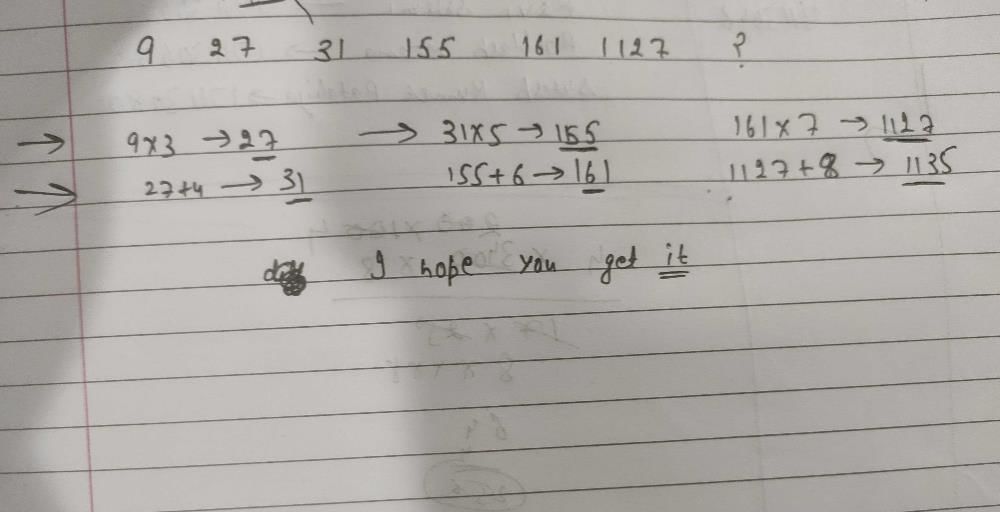 9 27 31 155 161 1127 ?
→ 9×3 → 27 → 31×5 → 155 161×7 → 1127
→ 27+4 → 31 155+6 → 161 1127+8 → 1135
I hope you get it